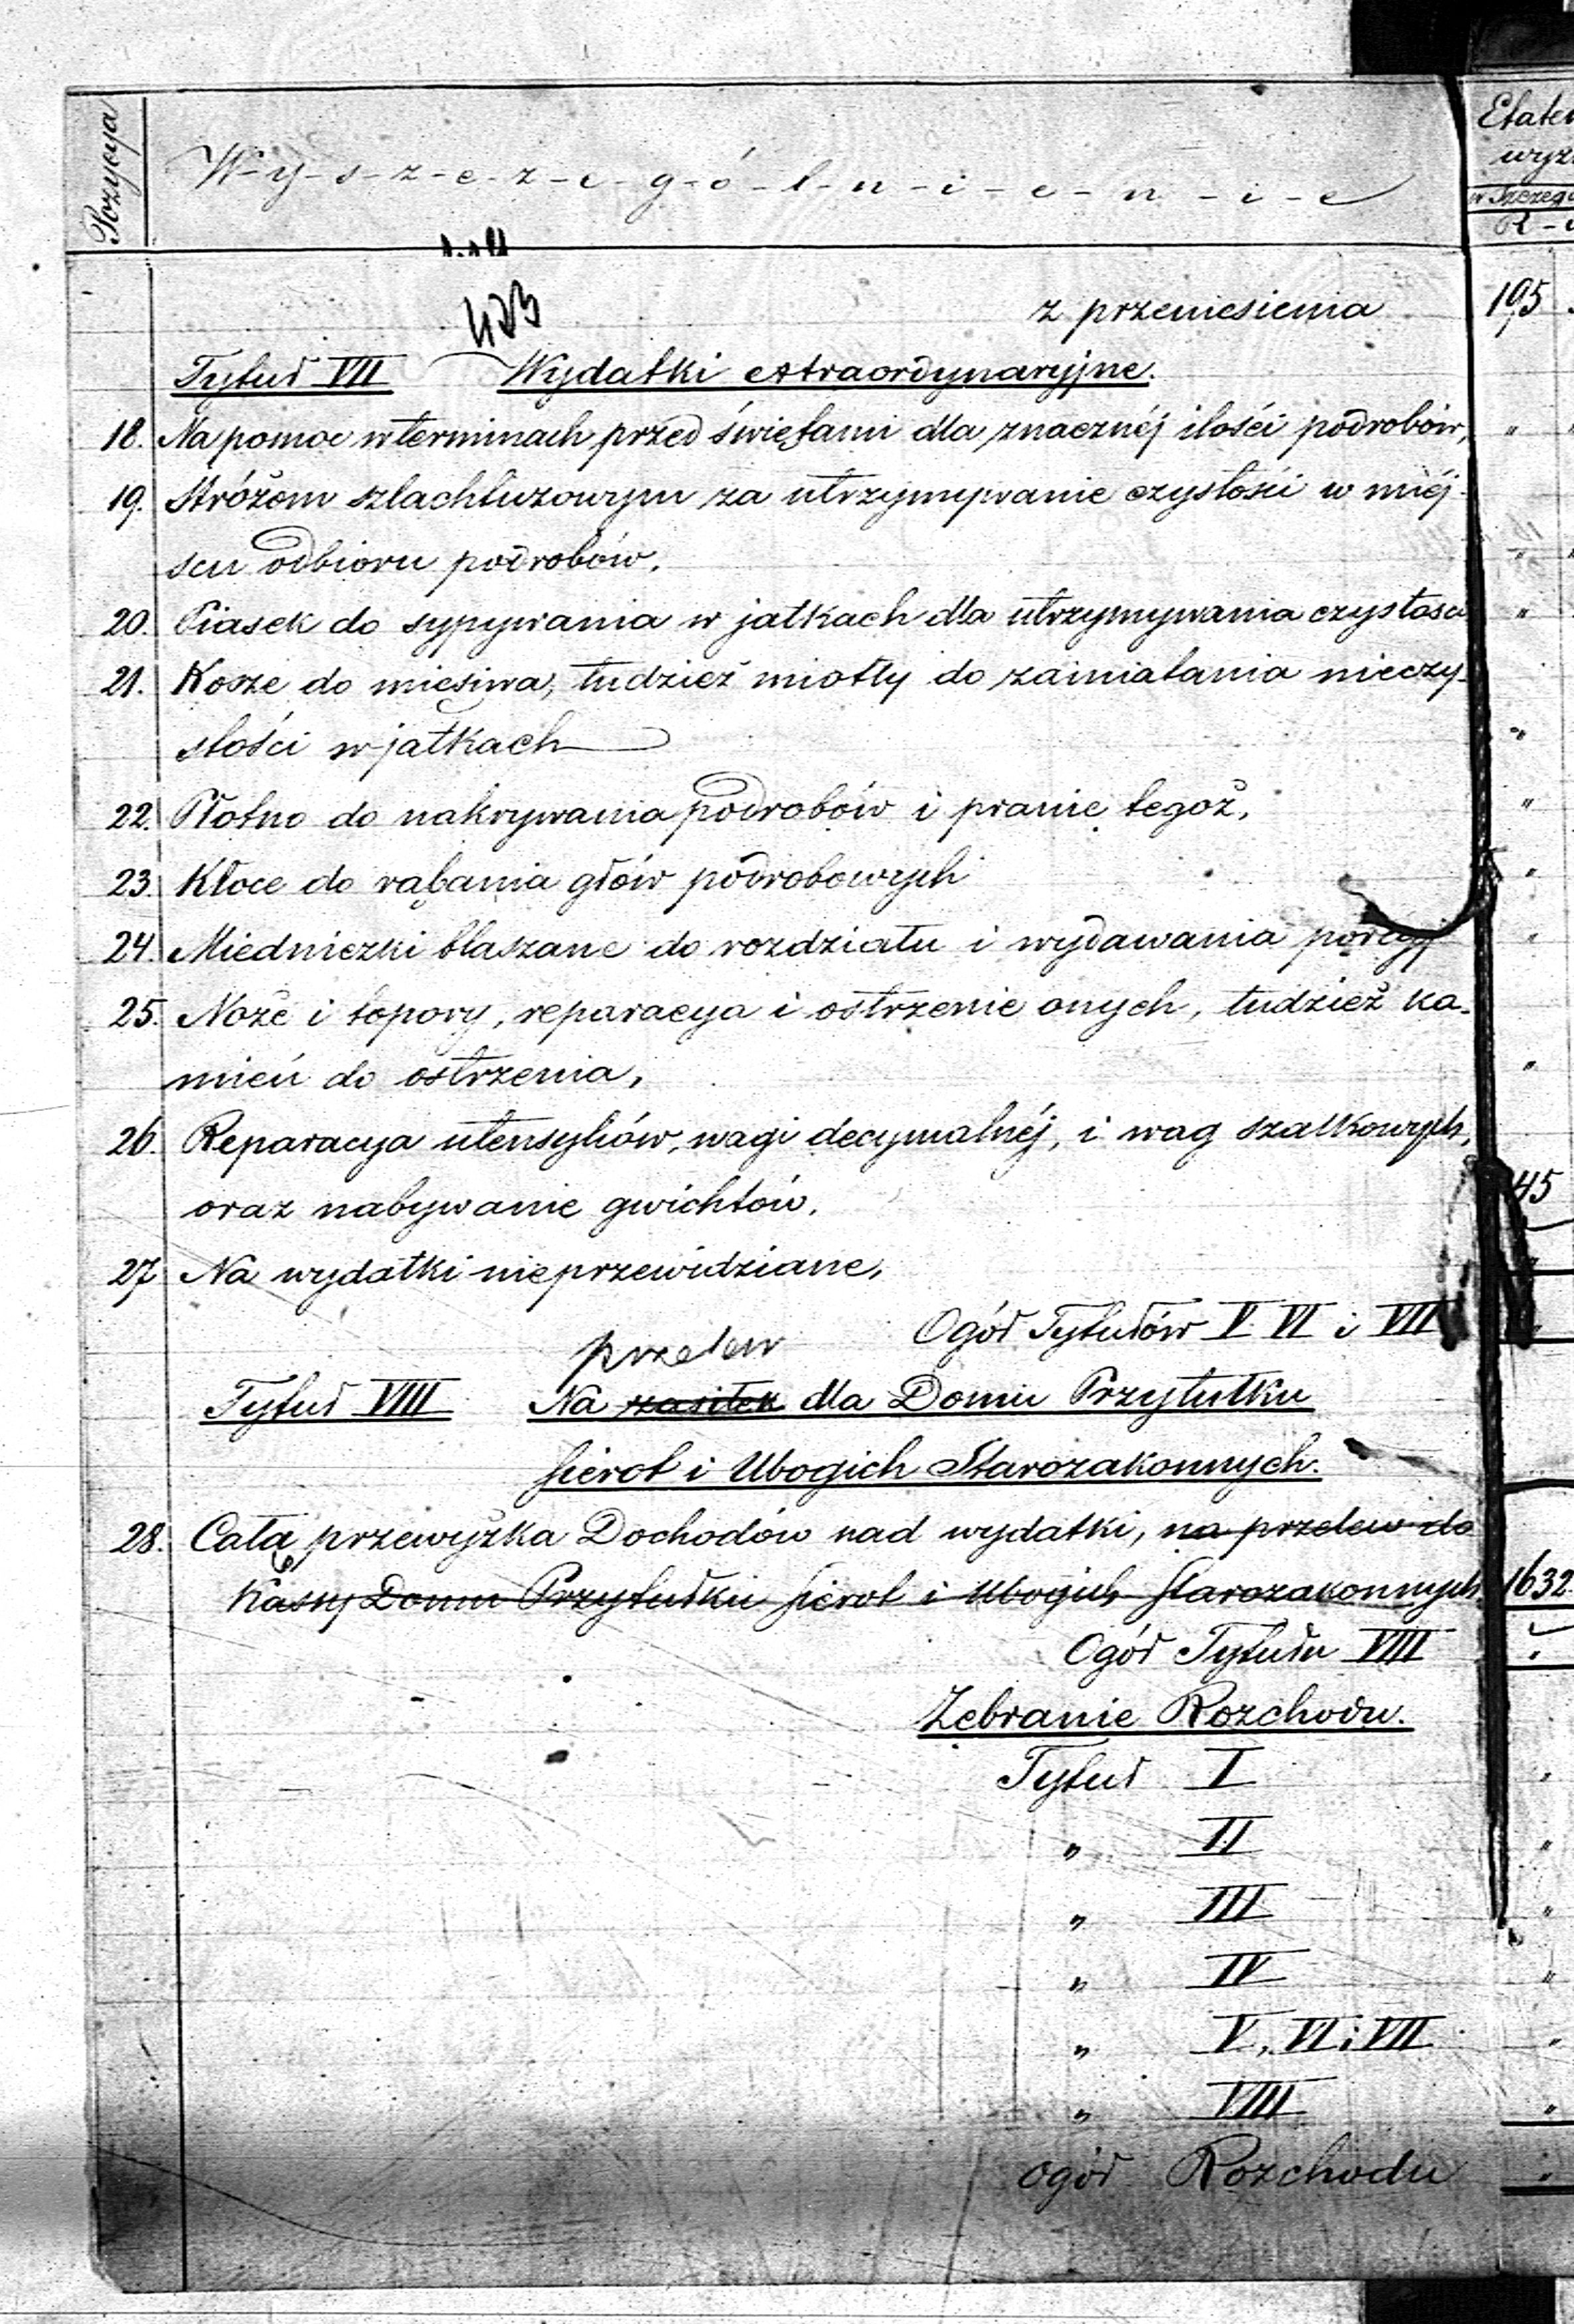 Pozycya
W-y-s-z-c-z-e-g-ó-l-n-i-e-n-i-e
Etatem
w Szczegó
R -
z przeniesienia 195
Tytuł VII Wydatki extraordynaryjne.
18. Na pomoc w terminach przed świętami dla znacznéj ilości podrobów, "
19. Stróżom szlachtuzowym za utrzymywanie czystości w miéj-
scu odbioru podrobów. "
20. Piasek do sypywania w jatkach dla utrzymywania czystości "
21. Kosze do mięsiwa, tudzież miotły do zamiatania nieczy-
stości w jatkach "
22. Płótno do nakrywania podrobów i pranie tegoż, "
23. Kłoce do rąbania głów podrobowych "
24. Miedniczki blaszane do rozdziału i wydawania porcyj "
25. Noże i topory, reparacya i ostrzenie onych, tudzież ka-
mień do ostrzenia, "
26. Reparacya utensyliów, wagi decymalnéj, i wag szalkowych,
oraz nabywanie gwichtów. 45
27 Na wydatki nieprzewidziane,
Ogół Tytułów V VI i VII
przelew
Tytuł VIII Na zasiłek dla Domu Przytułku
Sierot i Ubogich Starozakonnych.
28. Cała przewyżka Dochodów nad wydatki, na przelew do
Kassy Domu Przytułku Sierot i Ubogich Starozakonnych 1632
Ogół Tytułu VIII "
Zebranie Rozchodu.
Tytuł I "
" II "
" III "
" IV "
" V, VI i VII "
" VIII "
Ogół Rozchodu "